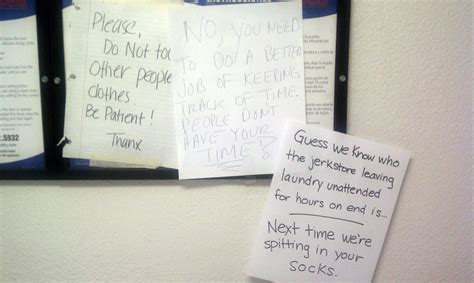 Please,
Do Not tou
Other people
clothes.
Be Patient!
Thanx
NO, YOU NEED
TO DO A BETTER
JOB OF KEEPING
TRACK OF TIME.
PEOPLE DON'T
HAVE YOUR
TIME!
GUESS WE KNOW WHO
the jerkstore leaving
laundry unattended
for hours on end is...
Next time we're
spitting in your
SOCKS.
5932